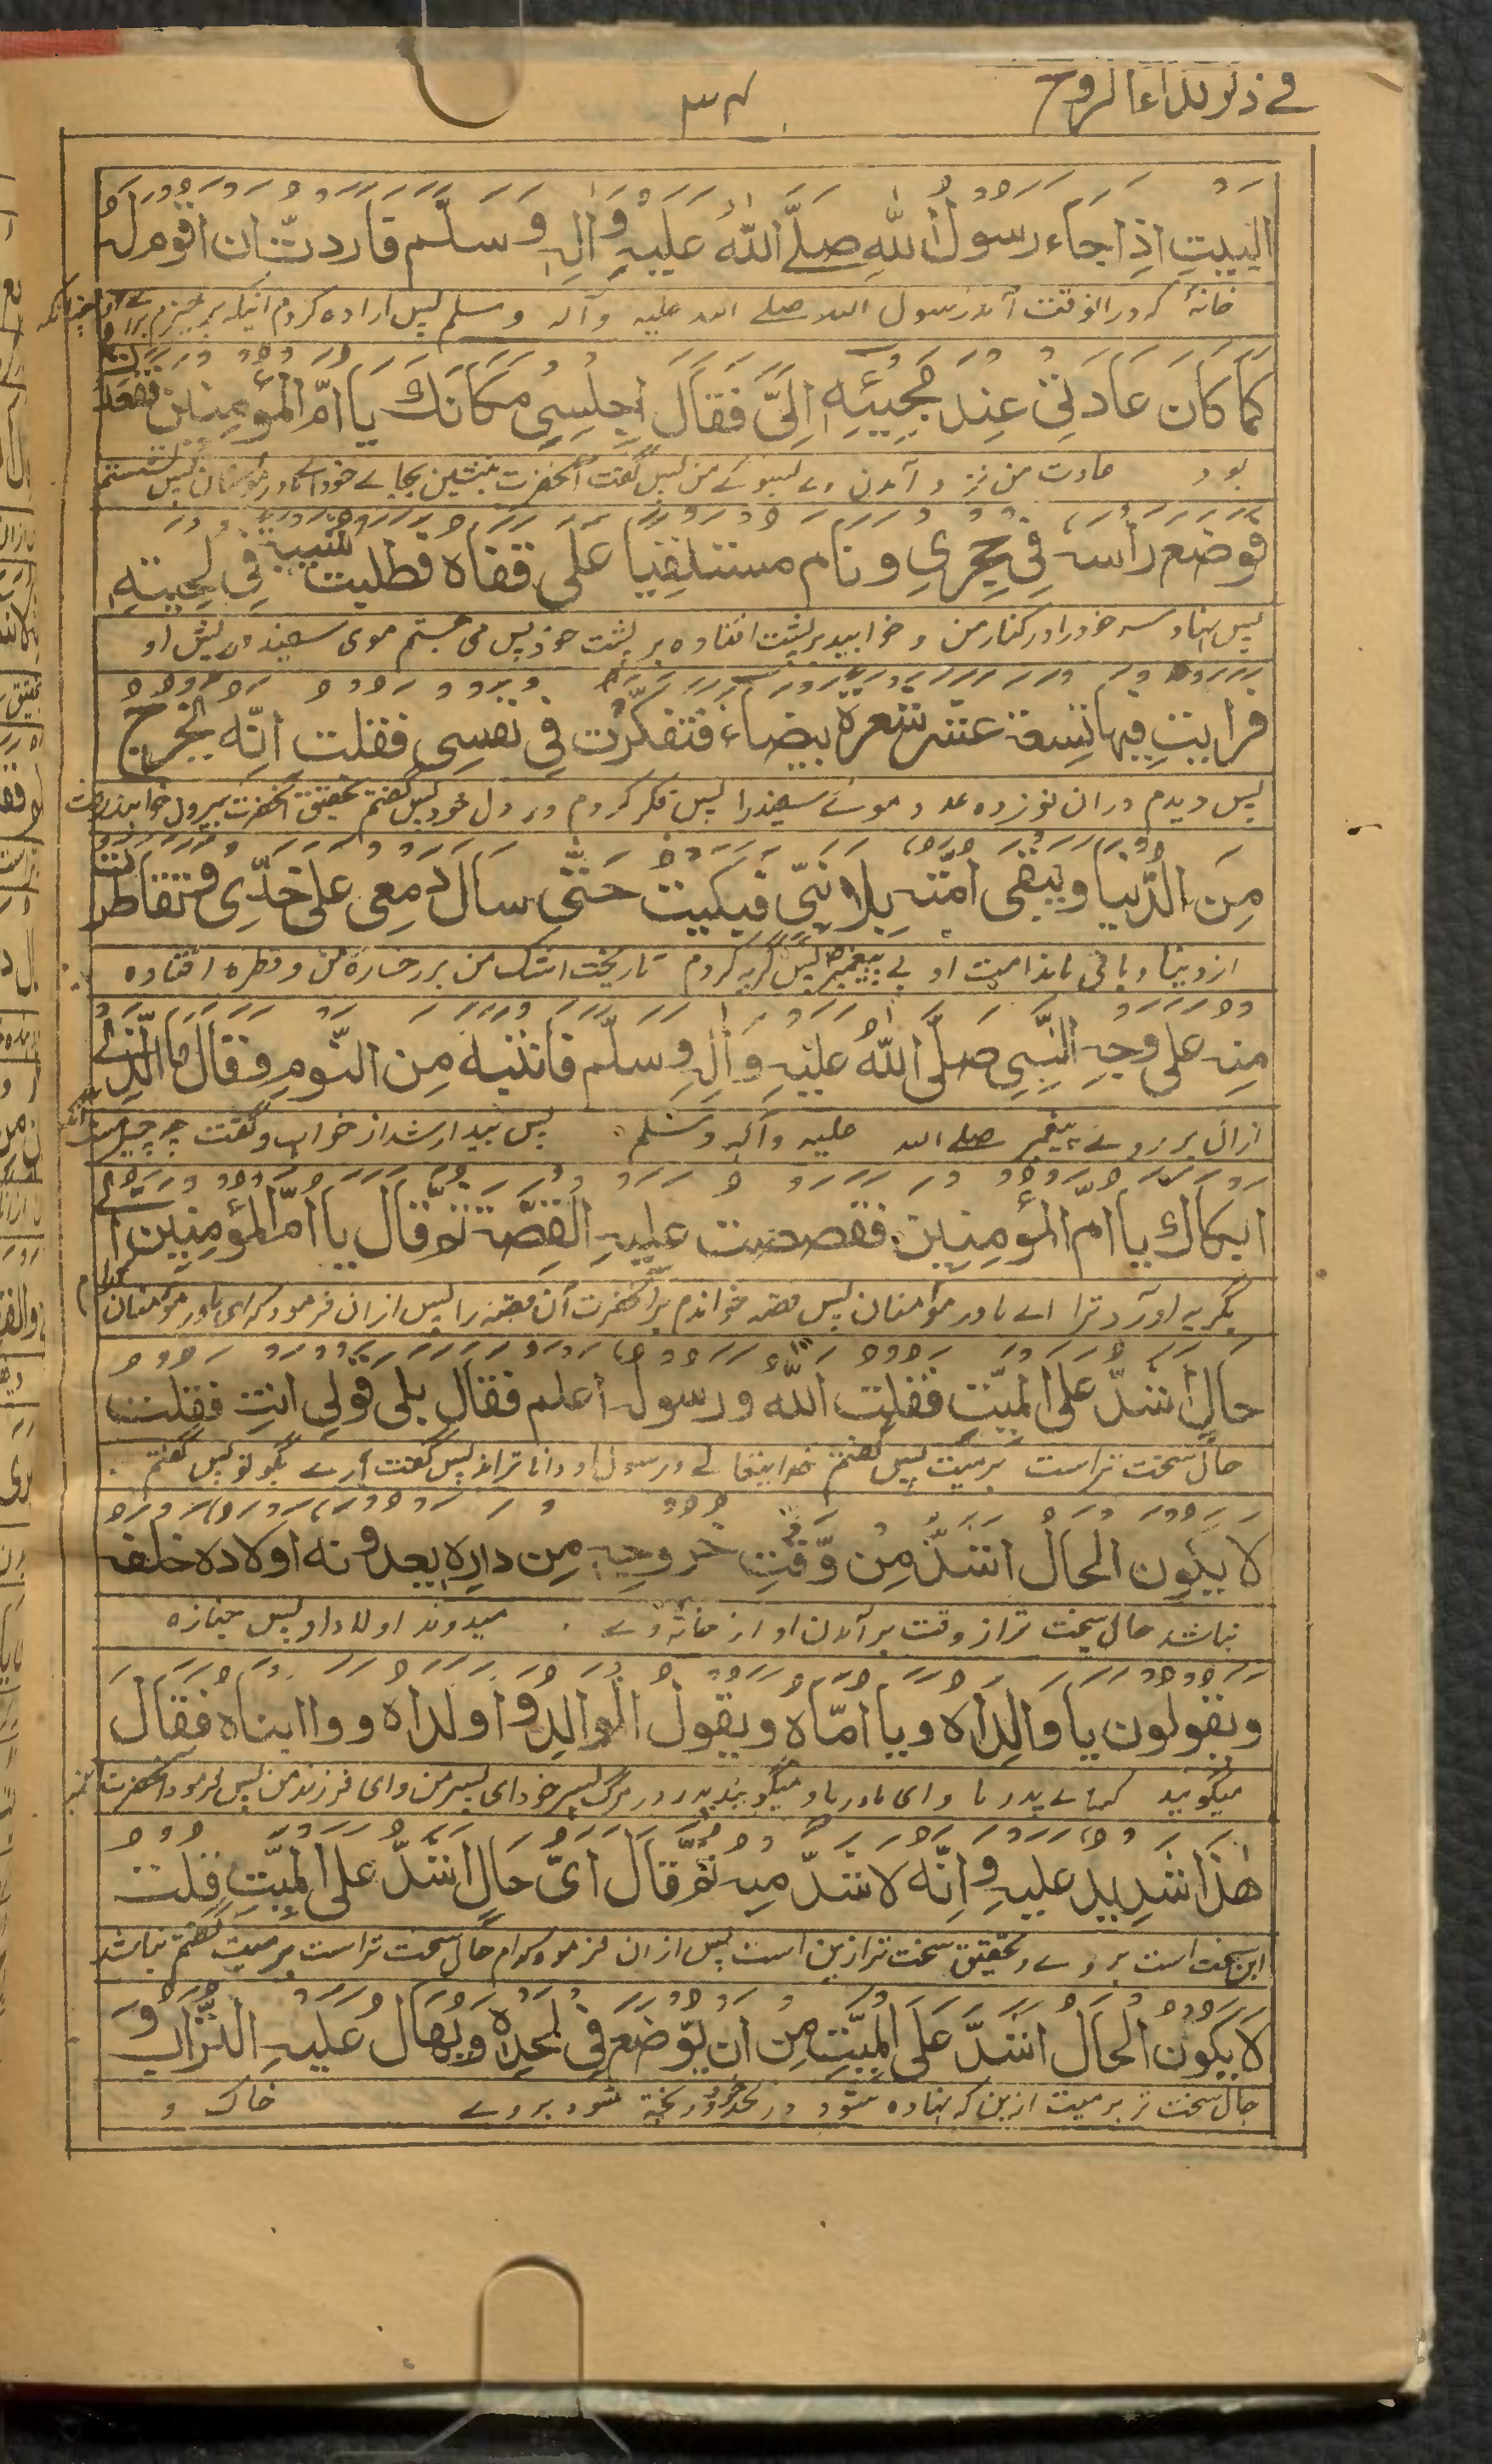 في ذكر نداء الروح
٣٤
البيتِ اذا جَاءَ رسولُ اللهِ صلّى اللهُ عليهِ والهِ وسلّم فاردتّ ان اقوم له
خانهٔ که درانوقت آمد رسول الله صلے الله علیه وآله وسلم پس اراده کردم اینکه برخیزم برائے او چنانکه
كما كان عادتي عند مجيئه اليَّ فقال اجلسي مكانك يا امّ المؤمنين فقعدت
بود عادت من نزد آمدن وے بسوئے من پس گفت آنحضرت بنشین بجائے خود اے مادر مؤمنان پس نشستم
فوضع رأسه في حِجري ونام مستلقيا على قفاه فطلبت شيبة في لحيته
پس نهاد سر خود را در کنار من و خوابید بر پشت افتاده بر پشت خود پس می جستم موی سفید در ریش او
فرايتِ فيها تسعة عشر شعرة بيضاء فتفكّرت في نفسي فقلت انّه يخرج
پس دیدم دران نوزده عدد موئے سفید را پس فکر کردم در دل خود پس گفتم تحقیق آنحضرت بیرون خواهند رفت
مِنَ الدُّنيا ويبقى امّته بلا نبيّ فبكيتُ حتّى سال دمعي على خدّي وتقاطرت
از دنیا و باقی ماند امت او بے پیغمبر پس گریه کردم تا ریخت اشک من بر رخساره من و قطره افتاده
منه على وجهِ النبي صلّى اللهُ عليهِ وآلهِ وسلّم فانتبه من النّوم فقال ما الّذي
ازان بر روئے پیغمبر صلے الله علیه وآله وسلم پس بیدار شد از خواب و گفت چه چیز ست آنکه
ابكاك يا امّ المؤمنين فقصصت عليه القصّة ثمّ قال يا امّ المؤمنين ايّ
بگریه آورد ترا اے مادر مؤمنان پس قصه خواندم بر آنحضرت آن قصه را پس ازان فرمود که ای مادر مؤمنان کدام
حالٍ اشدّ على الميّت فقلت اللهُ ورسوله اعلم فقال بلى قولي انتِ فقلت
حال سخت تر است بر میت پس گفتم خدایتعالے و رسول او داناتر اند پس گفت آرے بگو تو پس گفتم
لا يكون الحال اشدّ مِن وّقتِ خروجه من داره يعدونه اولاده خلفه
نباشد حال سخت تر از وقت برآمدن او از خانهٔ وے میدوند اولاد او پس جنازه
ويقولون يا والداه ويا امّاه ويقول الوالد وا ولداه ووا ابناه فقال
میگویند که اے پدر ما و ای مادر ما و میگوید پدر در مرگ پسر خود ای پسر من و ای فرزند من پس فرمود آنحضرت
هٰذا شديد عليه وانّه لاشدّ منه ثمّ قال ايّ حالٍ اشدّ على الميّتِ قلت
این سخت است بر وے و تحقیق سخت تر ازین است پس ازان فرمود کدام حال سخت تر است بر میت گفتم نباشد
لا يكون الحال اشدّ على الميّتِ من ان يّوضع في لحدِه ويُهال عليه التّراب و
حال سخت تر بر میت ازین که نهاده شود در لحد خود و ریخته شود بر وے خاک و